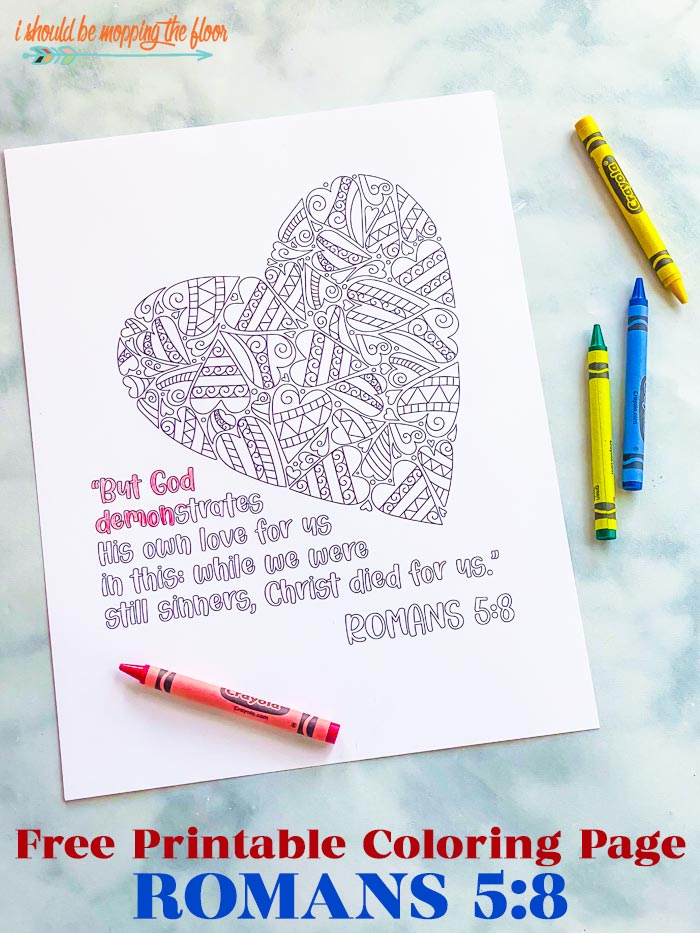 i should be mopping the floor
Crayola
Crayola.com
green
"But God
demonstrates
His own love for us
in this: while we were
still sinners, Christ died for us."
ROMANS 5:8
Crayola
Crayola.com
Free Printable Coloring Page
ROMANS 5:8